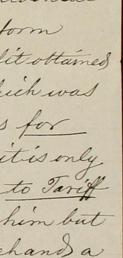 form
dit obtained
hich was
s for
it is only
to Tariff
him but
ehand a